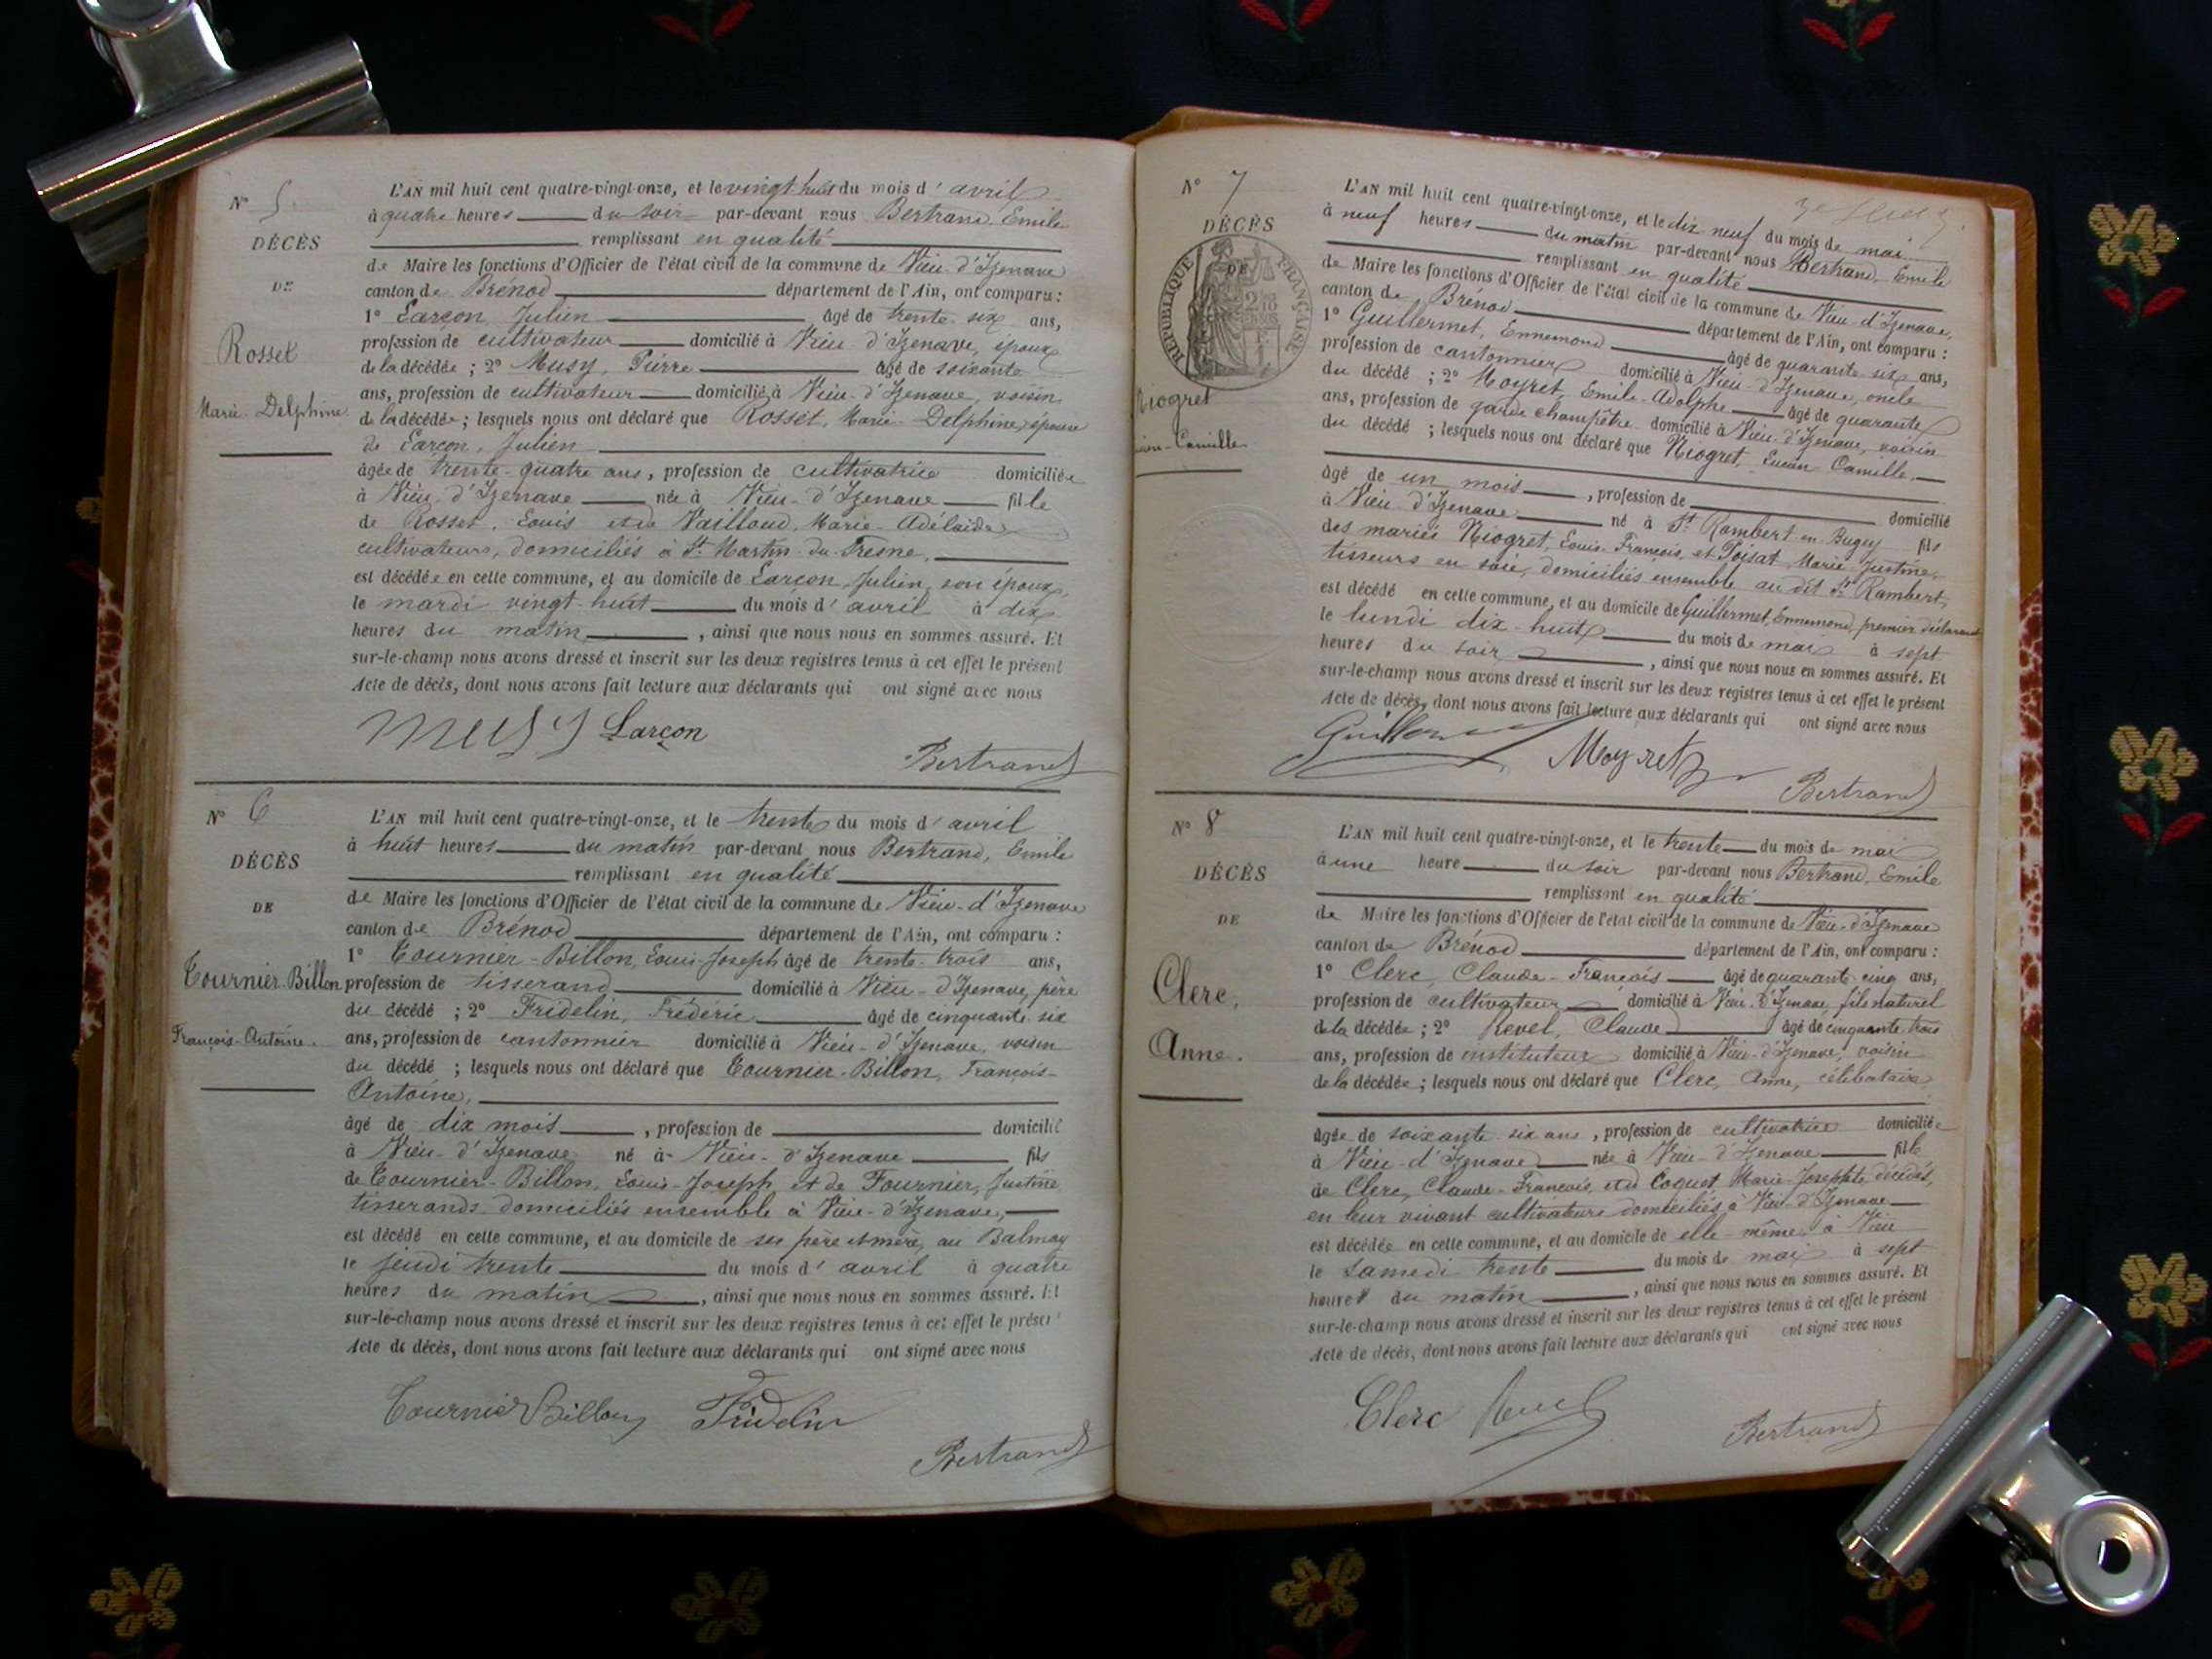 N° 5.
DÉCÈS
DE
Rosset
Marie-Delphine.
L'AN mil huit cent quatre-vingt-onze, et le vingt huit du mois d'avril
à quatre heures du soir par-devant nous Bertrand, Emile
remplissant en qualité
de Maire les fonctions d'Officier de l'état civil de la commune de Vieu-d'Izenave
canton de Brénod département de l'Ain, ont comparu :
1° Larçon, Julien âgé de trente six ans,
profession de cultivateur domicilié à Vieu-d'Izenave, époux
de la décédée ; 2° Musy, Pierre âgé de soixante
ans, profession de cultivateur domicilié à Vieu-d'Izenave, voisin
de la décédée ; lesquels nous ont déclaré que Rosset, Marie-Delphine, épouse
de Larçon, Julien
âgée de trente-quatre ans, profession de cultivatrice domiciliée
à Vieu-d'Izenave née à Vieu-d'Izenave fille
de Rosset, Louis et de Vailloud, Marie-Adélaïde
cultivateurs, domiciliés à St Martin-du-Fresne,
est décédée en cette commune, et au domicile de Larçon, Julien, son époux,
le mardi vingt-huit du mois d'avril à dix
heures du matin, ainsi que nous nous en sommes assuré. Et
sur-le-champ nous avons dressé et inscrit sur les deux registres tenus à cet effet le présent
Acte de décès, dont nous avons fait lecture aux déclarants qui ont signé avec nous
Musy Larçon
Bertrand
N° 6
DÉCÈS
DE
Tournier-Billon
François-Antoine.
L'AN mil huit cent quatre-vingt-onze, et le trente du mois d'avril
à huit heures du matin par-devant nous Bertrand, Emile
remplissant en qualité
de Maire les fonctions d'Officier de l'état civil de la commune de Vieu-d'Izenave
canton de Brénod département de l'Ain, ont comparu :
1° Tournier-Billon, Louis-Joseph âgé de trente-trois ans,
profession de tisserand domicilié à Vieu-d'Izenave, père
du décédé ; 2° Fridelin, Frédéric âgé de cinquante-six
ans, profession de cantonnier domicilié à Vieu-d'Izenave, voisin
du décédé ; lesquels nous ont déclaré que Tournier-Billon, François-
Antoine,
âgé de dix mois, profession de domicilié
à Vieu-d'Izenave né à Vieu-d'Izenave fils
de Tournier-Billon, Louis-Joseph et de Fournier, Justine
tisserands domiciliés ensemble à Vieu-d'Izenave,
est décédé en cette commune, et au domicile de ses père et mère, au Balmay
le jeudi trente du mois d'avril à quatre
heures du matin, ainsi que nous nous en sommes assuré. Et
sur-le-champ nous avons dressé et inscrit sur les deux registres tenus à cet effet le présent
Acte de décès, dont nous avons fait lecture aux déclarants qui ont signé avec nous
Tournier Billon Fridelin
Bertrand
N° 7
DÉCÈS
DE
RÉPUBLIQUE FRANÇAISE
Niogret
-Camille
L'AN mil huit cent quatre-vingt-onze, et le dix neuf du mois de mai
à neuf heures du matin par-devant nous Bertrand, Emile
remplissant en qualité
de Maire les fonctions d'Officier de l'état civil de la commune de Vieu-d'Izenave,
canton de Brénod département de l'Ain, ont comparu :
1° Guillermet, Ennemond âgé de quarante six ans,
profession de cantonnier domicilié à Vieu-d'Izenave, oncle
du décédé ; 2° Moyret, Emile-Adolphe âgé de quarante
ans, profession de garde champêtre domicilié à Vieu-d'Izenave, voisin
du décédé ; lesquels nous ont déclaré que Niogret, Lucien Camille,
âgé de un mois, profession de domicilié
à Vieu d'Izenave né à St Rambert-en-Bugey fils
des mariés Niogret, Louis-François, et Poisat, Marie Justine,
tisseurs en soie, domiciliés ensemble au dit St Rambert,
est décédé en cette commune, et au domicile de Guillermet, Ennemond, premier déclarant
le lundi dix-huit du mois de mai à sept
heures du soir, ainsi que nous nous en sommes assuré. Et
sur-le-champ nous avons dressé et inscrit sur les deux registres tenus à cet effet le présent
Acte de décès, dont nous avons fait lecture aux déclarants qui ont signé avec nous
Guillermet Moyret
Bertrand
N° 8
DÉCÈS
DE
Clerc,
Anne.
L'AN mil huit cent quatre-vingt-onze, et le trente du mois de mai
à une heure du soir par-devant nous Bertrand, Emile
remplissant en qualité
de Maire les fonctions d'Officier de l'état civil de la commune de Vieu-d'Izenave
canton de Brénod département de l'Ain, ont comparu :
1° Clerc, Claude-François âgé de quarante-cinq ans,
profession de cultivateur domicilié à Vieu-d'Izenave, fils naturel
de la décédée ; 2° Revel, Claude âgé de cinquante-trois
ans, profession de instituteur domicilié à Vieu-d'Izenave, voisin
de la décédée ; lesquels nous ont déclaré que Clerc, Anne, célibataire
âgée de soixante-six ans, profession de cultivatrice domiciliée
à Vieu-d'Izenave née à Vieu-d'Izenave fille
de Clerc, Claude-François, et de Coquet Marie-Josephte, décédés,
en leur vivant cultivateurs domiciliés à Vieu-d'Izenave
est décédée en cette commune, et au domicile de elle-même, à Vieu
le samedi trente du mois de mai à sept
heures du matin, ainsi que nous nous en sommes assuré. Et
sur-le-champ nous avons dressé et inscrit sur les deux registres tenus à cet effet le présent
Acte de décès, dont nous avons fait lecture aux déclarants qui ont signé avec nous
Clerc Revel
Bertrand